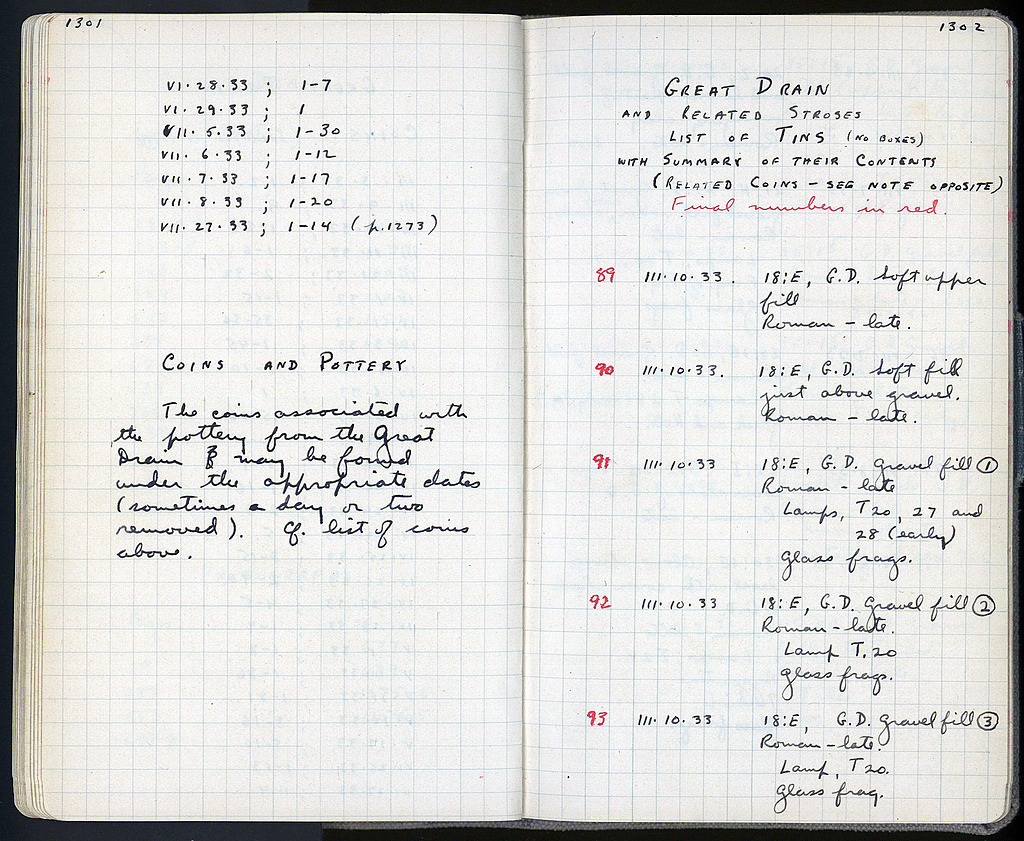 1301
VI·28·33 ; 1-7
VI·29·33 ; 1
VII·5·33 ; 1-30
VII·6·33 ; 1-12
VII·7·33 ; 1-17
VII·8·33 ; 1-20
VII·27·33 ; 1-14 (p.1273)
COINS AND POTTERY
The coins associated with
the pottery from the Great
Drain may be found
under the appropriate dates
(sometimes a day or two
removed). Cf. list of coins
above.
1302
GREAT DRAIN
AND RELATED STROSES
LIST OF TINS (NO BOXES)
WITH SUMMARY OF THEIR CONTENTS
(RELATED COINS - SEE NOTE OPPOSITE)
Final numbers in red.
89 III·10·33. 18:E, G.D. Soft upper
fill
Roman - late.
90 III·10·33. 18:E, G.D. Soft fill
just above gravel.
Roman - late.
91 III·10·33 18:E, G.D. Gravel fill ①
Roman - late
Lamps, T20, 27 and
28 (early)
Glass frags.
92 III·10·33 18:E, G.D. Gravel fill ②
Roman - late.
Lamp T.20
Glass frags.
93 III·10·33 18:E, G.D. Gravel fill ③
Roman - late.
Lamp, T20.
Glass frag.